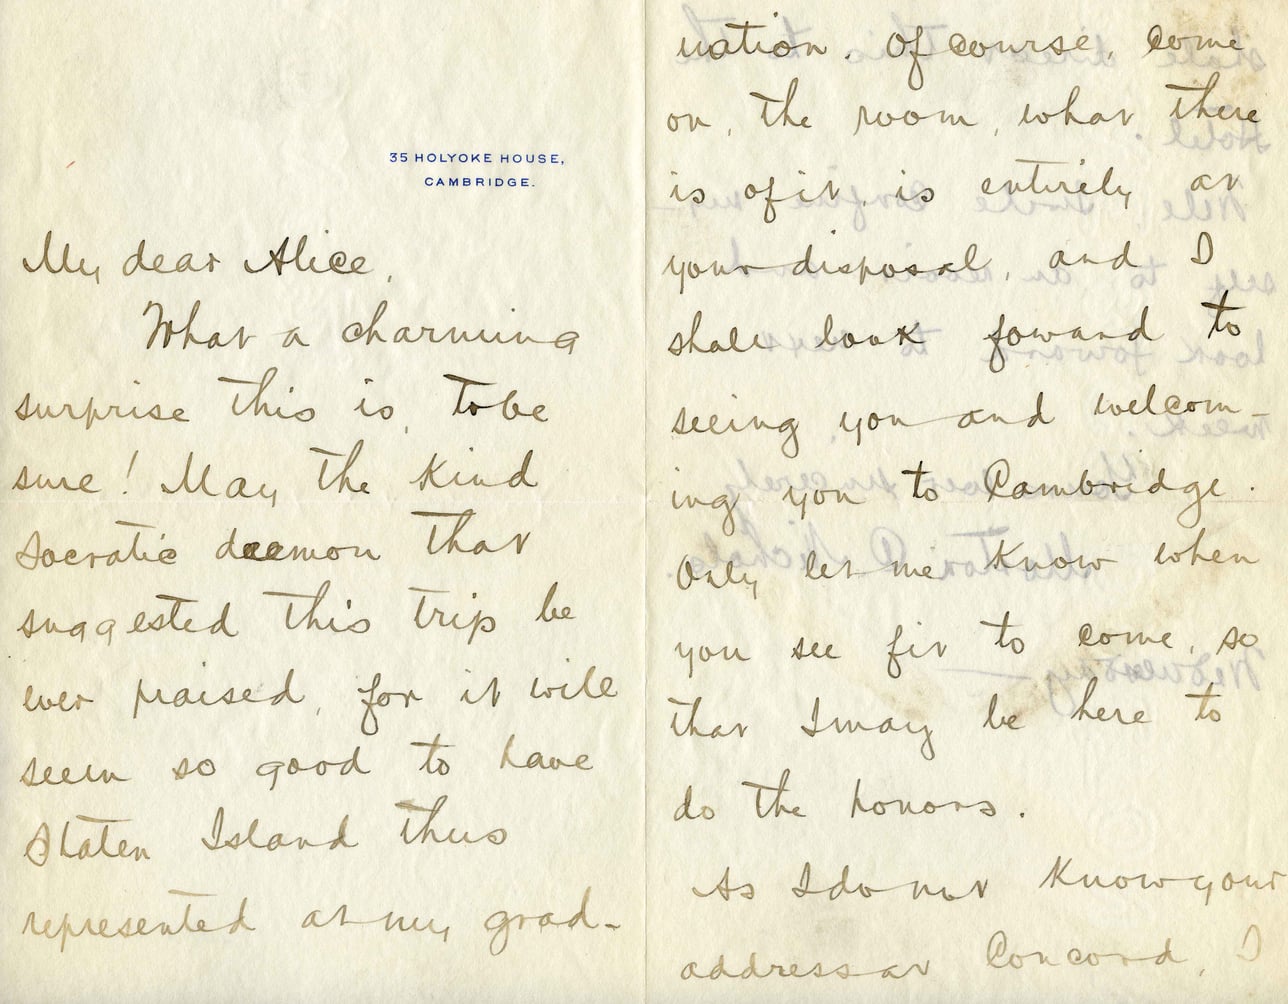 35 HOLYOKE HOUSE,
CAMBRIDGE.
My dear Alice,
What a charming
surprise this is, to be
sure! May the kind
Socratic daemon that
suggested this trip be
ever praised, for it will
seem so good to have
Staten Island thus
represented at my grad-
uation. Of course, come
on, the room, what there
is of it, is entirely at
your disposal, and I
shall look foward to
seeing you and welcom-
ing you to Cambridge.
Only let me know when
you see fit to come, so
that I may be here to
do the honors.
As I do not know your
address at Concord, I